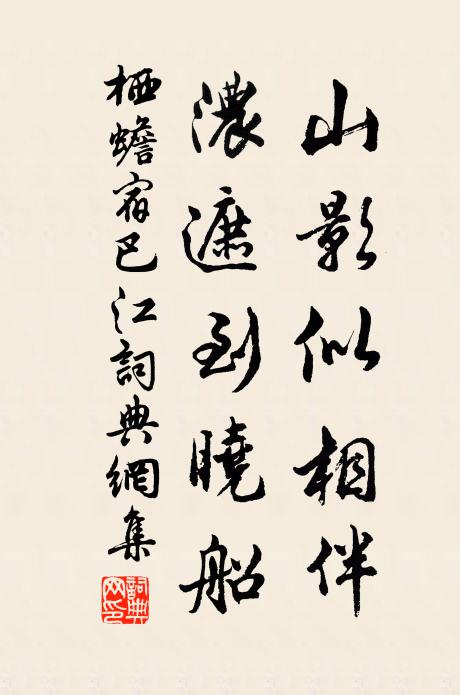 山影似相伴
濃遮到曉船
栖蟾宿巴江詞典網集
詞典网印